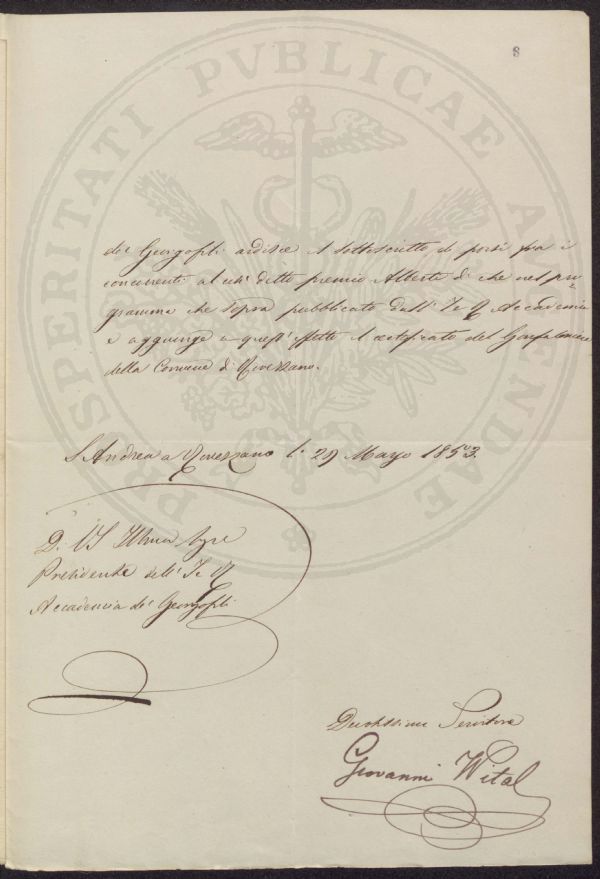 8
PROSPERITATI PVBLICAE AVGENDAE
de' Georgofili ardisce il sottoscritto di porsi fra i
concorrenti al così detto premio Alberti di che nel pro=
gramma che sopra pubblicato dall' I e R Accademia
e aggiunge a quest' effetto il certificato del Gonfaloniere
della Comune di Rovezzano.
S Andrea a Rovezzano li 29 1853.
D. VS Illma
Presidente dell' I e R
Accademia de' Georgofili
Servitore
Giovanni Vital